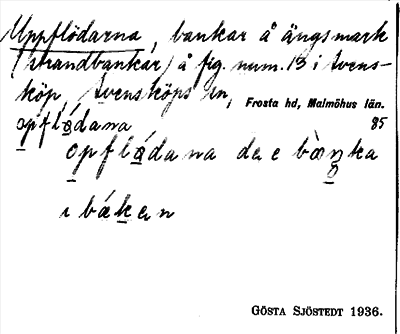 Uppflödarna, bankar å ängsmark
(strandbankar) å fig. num. 13 i Svens-
köp, Svensköps sn, Frosta hd, Malmöhus län.
opflödana 85
opflödana da e bànka
i bäken
GÖSTA SJÖSTEDT 1936.